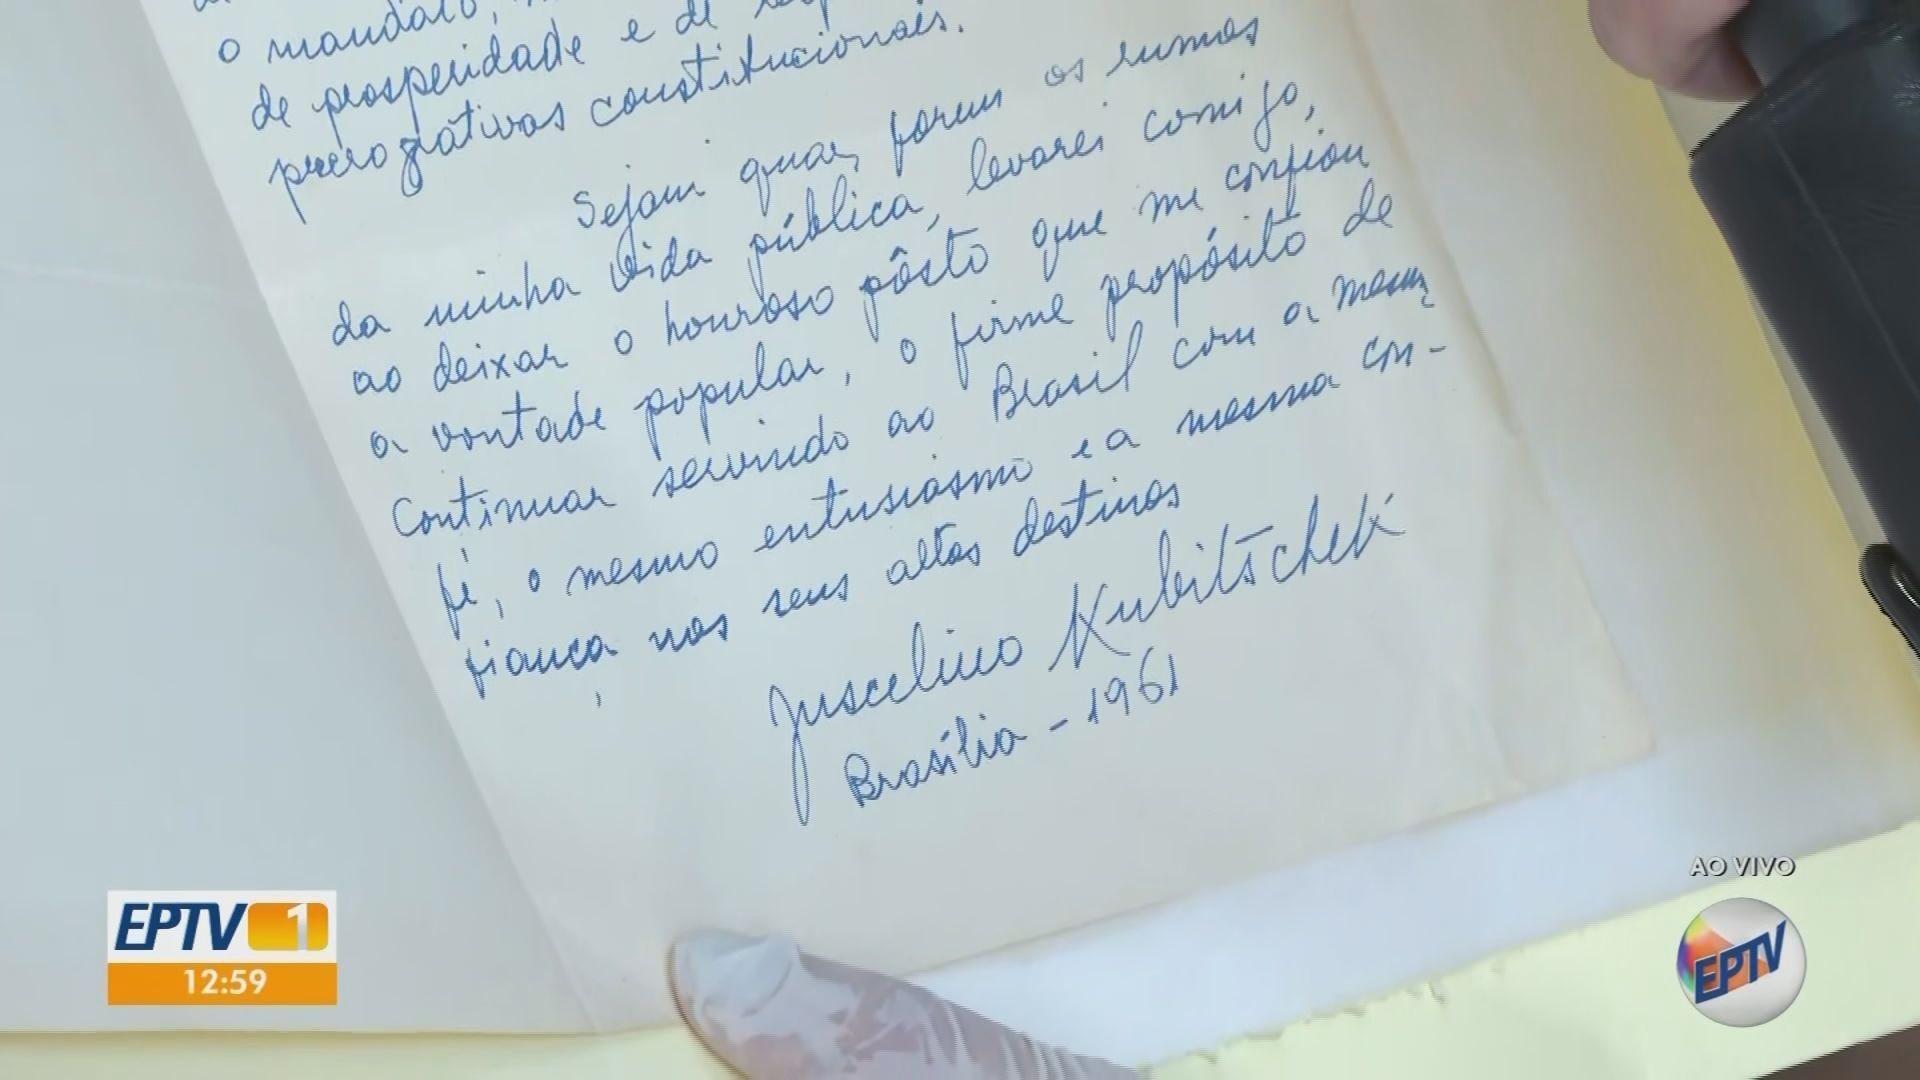 o mandato,
de prosperidade e de
prerrogativas constitucionais.
Sejam quais forem os rumos
da minha vida pública, levarei comigo,
ao deixar o honroso pôsto que me confiou
a vontade popular, o firme propósito de
Continuar servindo ao Brasil com a mesma
fé, o mesmo entusiasmo e a mesma con-
fiança nos seus altos destinos
Juscelino Kubitschek
Brasília - 1961
AO VIVO
EPTV 1
12:59
EPTV